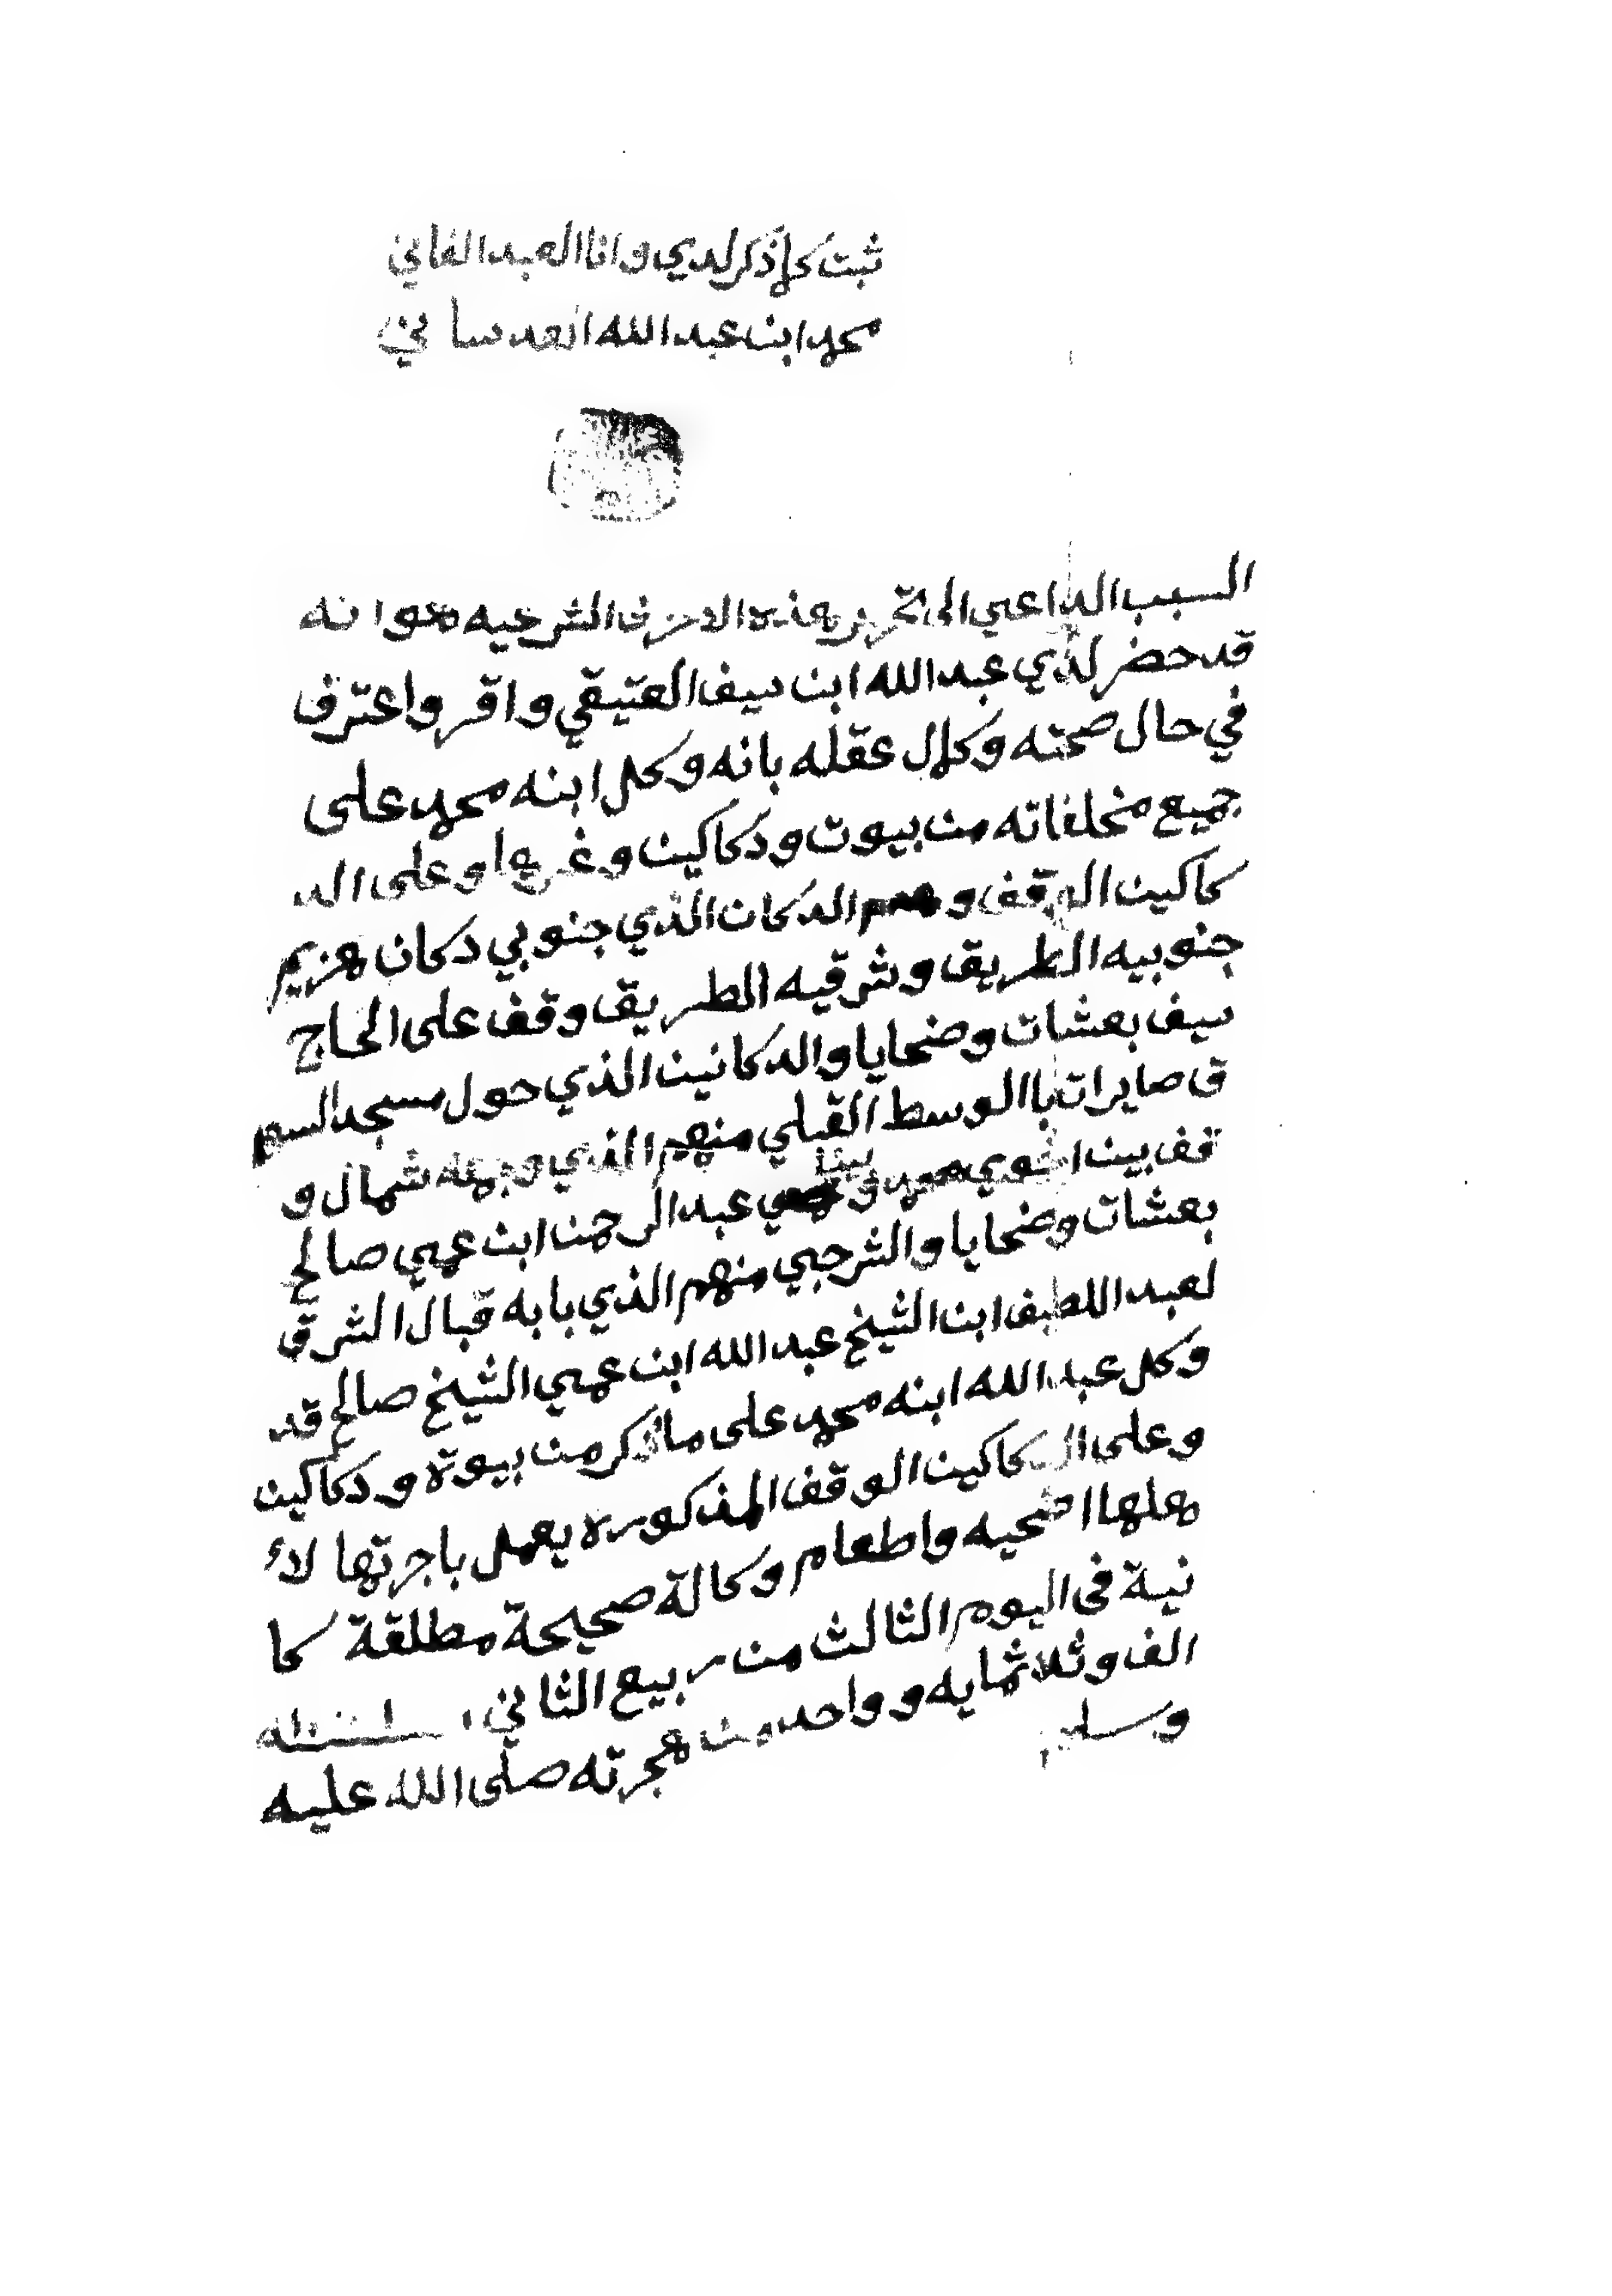 ثبت كلما ذكر لدي وانا العبد الفاني
محمد ابن عبد الله العدساني
السبب الداعي الى تحرير هذه الاحرف الشرعيه هو انه
قد حضر لدي عبد الله ابن سيف العتيقي واقر واعترف
في حال صحته وكمال عقله بانه وكل ابنه محمد على
جميع مخلفاته من بيوت ودكاكين وغيرها وعلى الد
كاكين الوقف و الدكان الذي جنوبي دكان هزيم
جنوبيه الطريق وشرقيه الطريق وقف على الحاج
سيف بعشات وضحايا والدكانين الذي حول مسجد السو
ق صايرات باالوسط القبلي منهم الذي وجهه شمال و
قف بين اخوي محمد و بين عبد الرحمن ابن عمي صالح
بعشات وضحايا والشرجي منهم الذي بابه قبال الشرق
لعبد اللطيف ابن الشيخ عبد الله ابن عمي الشيخ صالح قد
وكل عبد الله ابنه محمد على ما ذكر من بيوته ودكاكين
وعلى الدكاكين الوقف المذكوره يعمل باجرتها لاء
هلها اضحيه واطعام وكالة صحيحة مطلقة كا
نية فى اليوم الثالث من ربيع الثاني سنة
الف وثلاثمايه وواحد من هجرته صلى الله عليه
وسلم